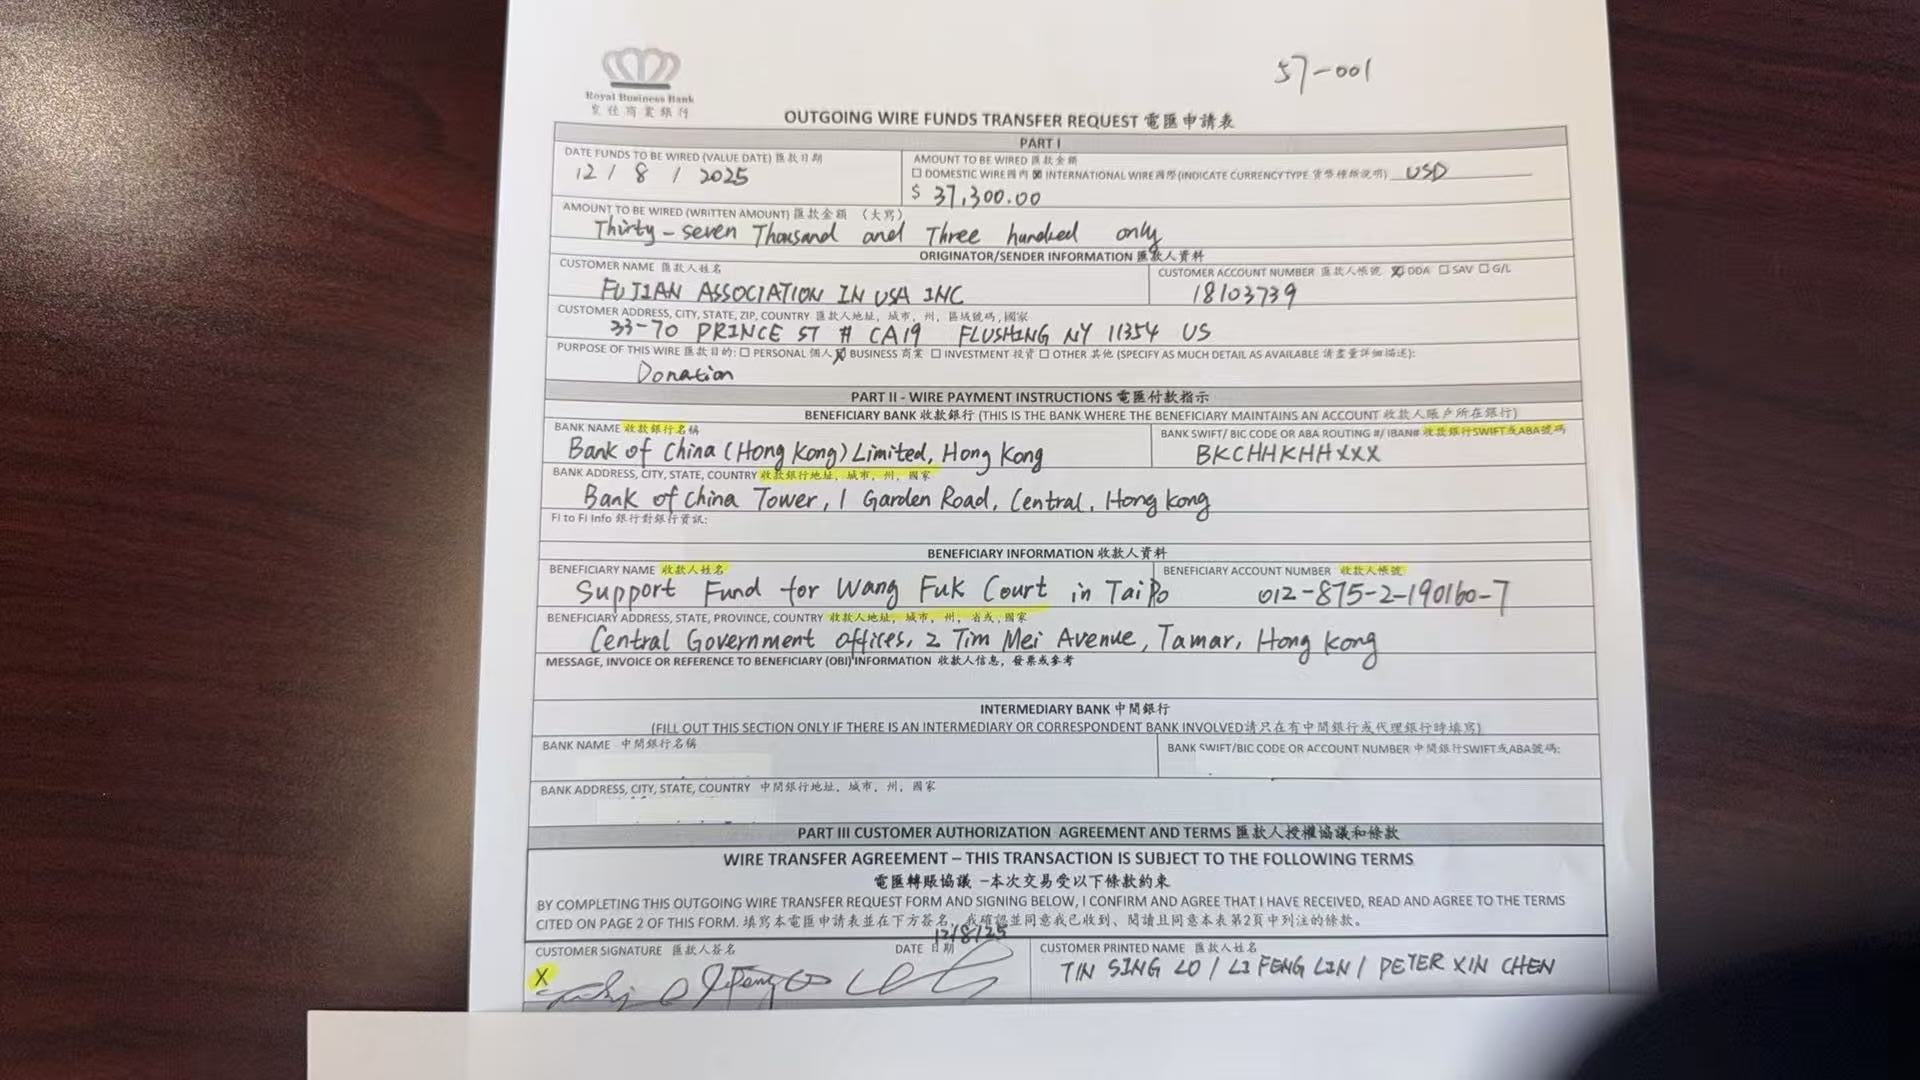 57-001
Royal Business Bank
皇佳商業銀行
OUTGOING WIRE FUNDS TRANSFER REQUEST 電匯申請表
PART I
DATE FUNDS TO BE WIRED (VALUE DATE) 匯款日期
12 / 8 / 2025
AMOUNT TO BE WIRED 匯款金額
DOMESTIC WIRE國內 INTERNATIONAL WIRE國際(INDICATE CURRENCY TYPE 貨幣種類說明) USD
$ 37,300.00
AMOUNT TO BE WIRED (WRITTEN AMOUNT) 匯款金額 (大寫)
Thirty-seven Thousand and Three hundred only
ORIGINATOR/SENDER INFORMATION 匯款人資料
CUSTOMER NAME 匯款人姓名
FUJIAN ASSOCIATION IN USA INC
CUSTOMER ACCOUNT NUMBER 匯款人帳號 DDA SAV G/L
18103739
CUSTOMER ADDRESS, CITY, STATE, ZIP, COUNTRY 匯款人地址, 城市, 州, 區域號碼, 國家
33-70 PRINCE ST # CA19 FLUSHING NY 11354 US
PURPOSE OF THIS WIRE 匯款目的: PERSONAL 個人 BUSINESS 商業 INVESTMENT 投資 OTHER 其他 (SPECIFY AS MUCH DETAIL AS AVAILABLE 請盡量詳細描述):
Donation
PART II - WIRE PAYMENT INSTRUCTIONS 電匯付款指示
BENEFICIARY BANK 收款銀行 (THIS IS THE BANK WHERE THE BENEFICIARY MAINTAINS AN ACCOUNT 收款人賬戶所在銀行)
BANK NAME 收款銀行名稱
Bank of China (Hong Kong) Limited, Hong Kong
BANK SWIFT/ BIC CODE OR ABA ROUTING #/ IBAN# 收款銀行SWIFT或ABA號碼
BKCHHKHHXXX
BANK ADDRESS, CITY, STATE, COUNTRY 收款銀行地址, 城市, 州, 國家
Bank of China Tower, 1 Garden Road, Central, Hong Kong
FI to FI Info 銀行對銀行資訊:
BENEFICIARY INFORMATION 收款人資料
BENEFICIARY NAME 收款人姓名
Support Fund for Wang Fuk Court in Tai Po
BENEFICIARY ACCOUNT NUMBER 收款人帳號
012-875-2-190160-7
BENEFICIARY ADDRESS, STATE, PROVINCE, COUNTRY 收款人地址, 城市, 州, 省或, 國家
Central Government Offices, 2 Tim Mei Avenue, Tamar, Hong Kong
MESSAGE, INVOICE OR REFERENCE TO BENEFICIARY (OBI) INFORMATION 收款人信息, 發票或參考
INTERMEDIARY BANK 中間銀行
(FILL OUT THIS SECTION ONLY IF THERE IS AN INTERMEDIARY OR CORRESPONDENT BANK INVOLVED請只在有中間銀行或代理銀行時填寫)
BANK NAME 中間銀行名稱
BANK SWIFT/BIC CODE OR ACCOUNT NUMBER 中間銀行SWIFT或ABA號碼:
BANK ADDRESS, CITY, STATE, COUNTRY 中間銀行地址, 城市, 州, 國家
PART III CUSTOMER AUTHORIZATION AGREEMENT AND TERMS 匯款人授權協議和條款
WIRE TRANSFER AGREEMENT – THIS TRANSACTION IS SUBJECT TO THE FOLLOWING TERMS
電匯轉賬協議 –本次交易受以下條款約束
BY COMPLETING THIS OUTGOING WIRE TRANSFER REQUEST FORM AND SIGNING BELOW, I CONFIRM AND AGREE THAT I HAVE RECEIVED, READ AND AGREE TO THE TERMS
CITED ON PAGE 2 OF THIS FORM. 填寫本電匯申請表並在下方簽名, 我確認並同意我已收到、閱讀且同意本表第2頁中列注的條款。
CUSTOMER SIGNATURE 匯款人簽名
DATE 日期 12/8/25
X
CUSTOMER PRINTED NAME 匯款人姓名
TIN SING LO / LI FENG LIN / PETER XIN CHEN